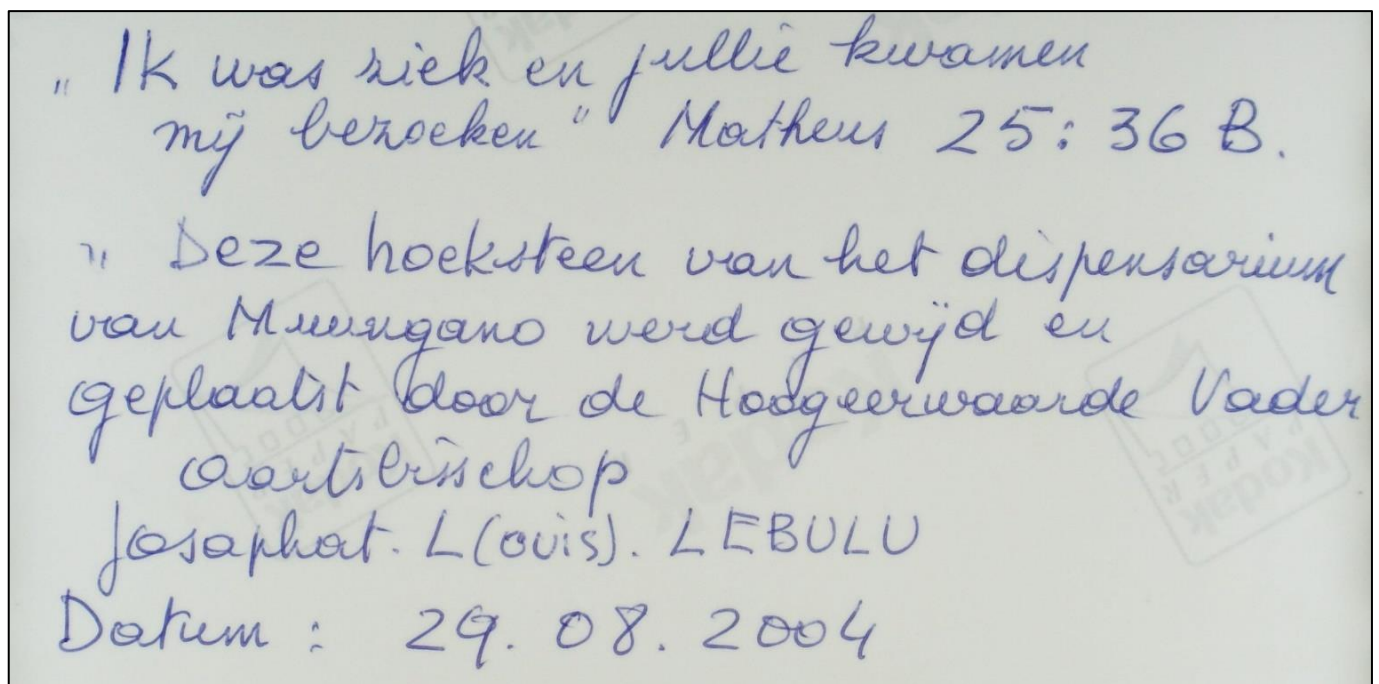 „ Ik was ziek en jullie kwamen
mij bezoeken " Matheus 25: 36 B.
„ Deze hoeksteen van het dispensarium
van Muungano werd gewijd en
geplaatst door de Hoogeerwaarde Vader
aartsbisschop
Josaphat. L(ouis). LEBULU
Datum : 29. 08. 2004